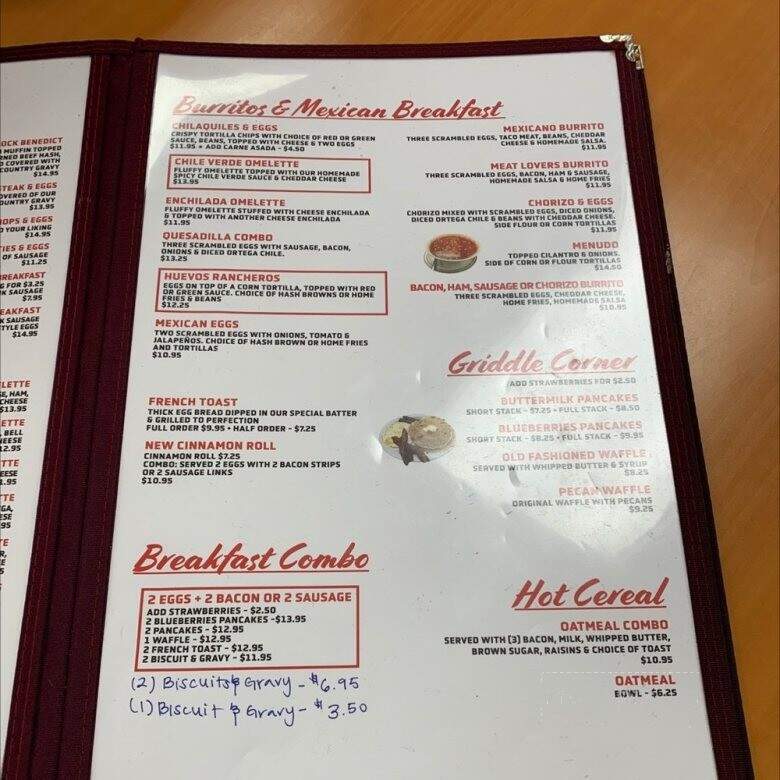 OCK BENEDICT
MUFFIN TOPPED
RNED BEEF HASH,
COVERED WITH
COUNTRY GRAVY
$14.95
STEAK & EGGS
OVERED OF OUR
OUNTRY GRAVY
$13.95
OPS & EGGS
YOUR LIKING
$14.95
IES & EGGS
OF SAUSAGE
$11.25
REAKFAST
G FOR $3.25
K SAUSAGE
$7.95
EAKFAST
K SAUSAGE
TYLE EGGS
$14.95
LETTE
E, HAM,
CHEESE
$13.95
ETTE
BELL
HEESE
12.95
TTE
EESE
1.95
TTE
GA,
ESE
.95
Burritos & Mexican Breakfast
CHILAQUILES & EGGS
CRISPY TORTILLA CHIPS WITH CHOICE OF RED OR GREEN
SAUCE, BEANS, TOPPED WITH CHEESE & TWO EGGS
$11.95 • ADD CARNE ASADA - $4.50
CHILE VERDE OMELETTE
FLUFFY OMELETTE TOPPED WITH OUR HOMEMADE
SPICY CHILE VERDE SAUCE & CHEDDAR CHEESE
$13.95
ENCHILADA OMELETTE
FLUFFY OMELETTE STUFFED WITH CHEESE ENCHILADA
& TOPPED WITH ANOTHER CHEESE ENCHILADA
$11.95
QUESADILLA COMBO
THREE SCRAMBLED EGGS WITH SAUSAGE, BACON,
ONIONS & DICED ORTEGA CHILE.
$13.25
HUEVOS RANCHEROS
EGGS ON TOP OF A CORN TORTILLA, TOPPED WITH RED
OR GREEN SAUCE. CHOICE OF HASH BROWNS OR HOME
FRIES & BEANS
$12.25
MEXICAN EGGS
TWO SCRAMBLED EGGS WITH ONIONS, TOMATO &
JALAPEÑOS. CHOICE OF HASH BROWN OR HOME FRIES
AND TORTILLAS
$10.95
FRENCH TOAST
THICK EGG BREAD DIPPED IN OUR SPECIAL BATTER
& GRILLED TO PERFECTION
FULL ORDER $9.95 • HALF ORDER - $7.25
NEW CINNAMON ROLL
CINNAMON ROLL $7.25
COMBO: SERVED 2 EGGS WITH 2 BACON STRIPS
OR 2 SAUSAGE LINKS
$10.95
MEXICANO BURRITO
THREE SCRAMBLED EGGS, TACO MEAT, BEANS, CHEDDAR
CHEESE & HOMEMADE SALSA.
$11.95
MEAT LOVERS BURRITO
THREE SCRAMBLED EGGS, BACON, HAM & SAUSAGE,
HOMEMADE SALSA & HOME FRIES
$11.95
CHORIZO & EGGS
CHORIZO MIXED WITH SCRAMBLED EGGS, DICED ONIONS,
DICED ORTEGA CHILE & BEANS WITH CHEDDAR CHEESE.
SIDE FLOUR OR CORN TORTILLAS
$11.95
MENUDO
TOPPED CILANTRO & ONIONS.
SIDE OF CORN OR FLOUR TORTILLAS
$14.50
BACON, HAM, SAUSAGE OR CHORIZO BURRITO
THREE SCRAMBLED EGGS, CHEDDAR CHEESE,
HOME FRIES, HOMEMADE SALSA
$10.95
Griddle Corner
ADD STRAWBERRIES FOR $2.50
BUTTERMILK PANCAKES
SHORT STACK - $7.25 • FULL STACK - $8.50
BLUEBERRIES PANCAKES
SHORT STACK - $8.25 • FULL STACK - $9.95
OLD FASHIONED WAFFLE
SERVED WITH WHIPPED BUTTER & SYRUP
$8.25
PECAN WAFFLE
ORIGINAL WAFFLE WITH PECANS
$9.25
Breakfast Combo
2 EGGS + 2 BACON OR 2 SAUSAGE
ADD STRAWBERRIES - $2.50
2 BLUEBERRIES PANCAKES -$13.95
2 PANCAKES - $12.95
1 WAFFLE - $12.95
2 FRENCH TOAST - $12.95
2 BISCUIT & GRAVY - $11.95
(2) Biscuits & Gravy - $6.95
(1) Biscuit & Gravy - $3.50
Hot Cereal
OATMEAL COMBO
SERVED WITH (3) BACON, MILK, WHIPPED BUTTER,
BROWN SUGAR, RAISINS & CHOICE OF TOAST
$10.95
OATMEAL
BOWL - $6.25